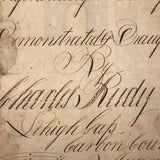 Demonstrated by Draug
By
Charles Rudy
Lehigh Gap.
Carbon Cou